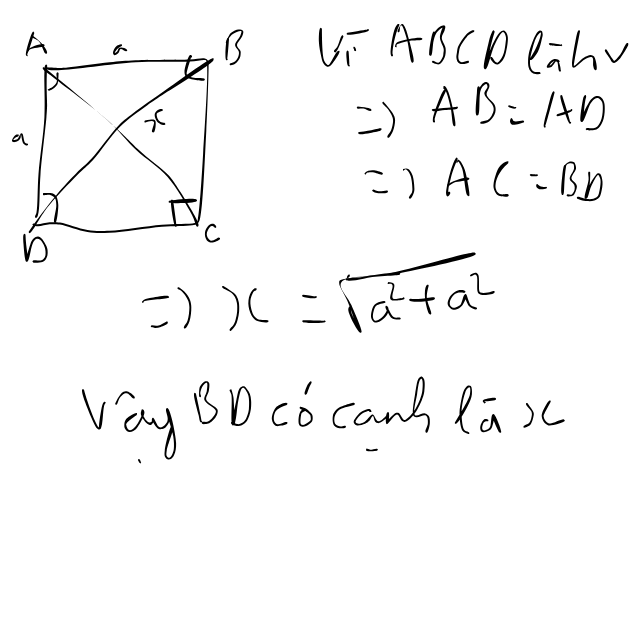 A a B
Vì ABCD là hv
a x
=) AB = AD
=) AC = BD
D C
=) x = √a²+a²
Vậy BD có cạnh là x